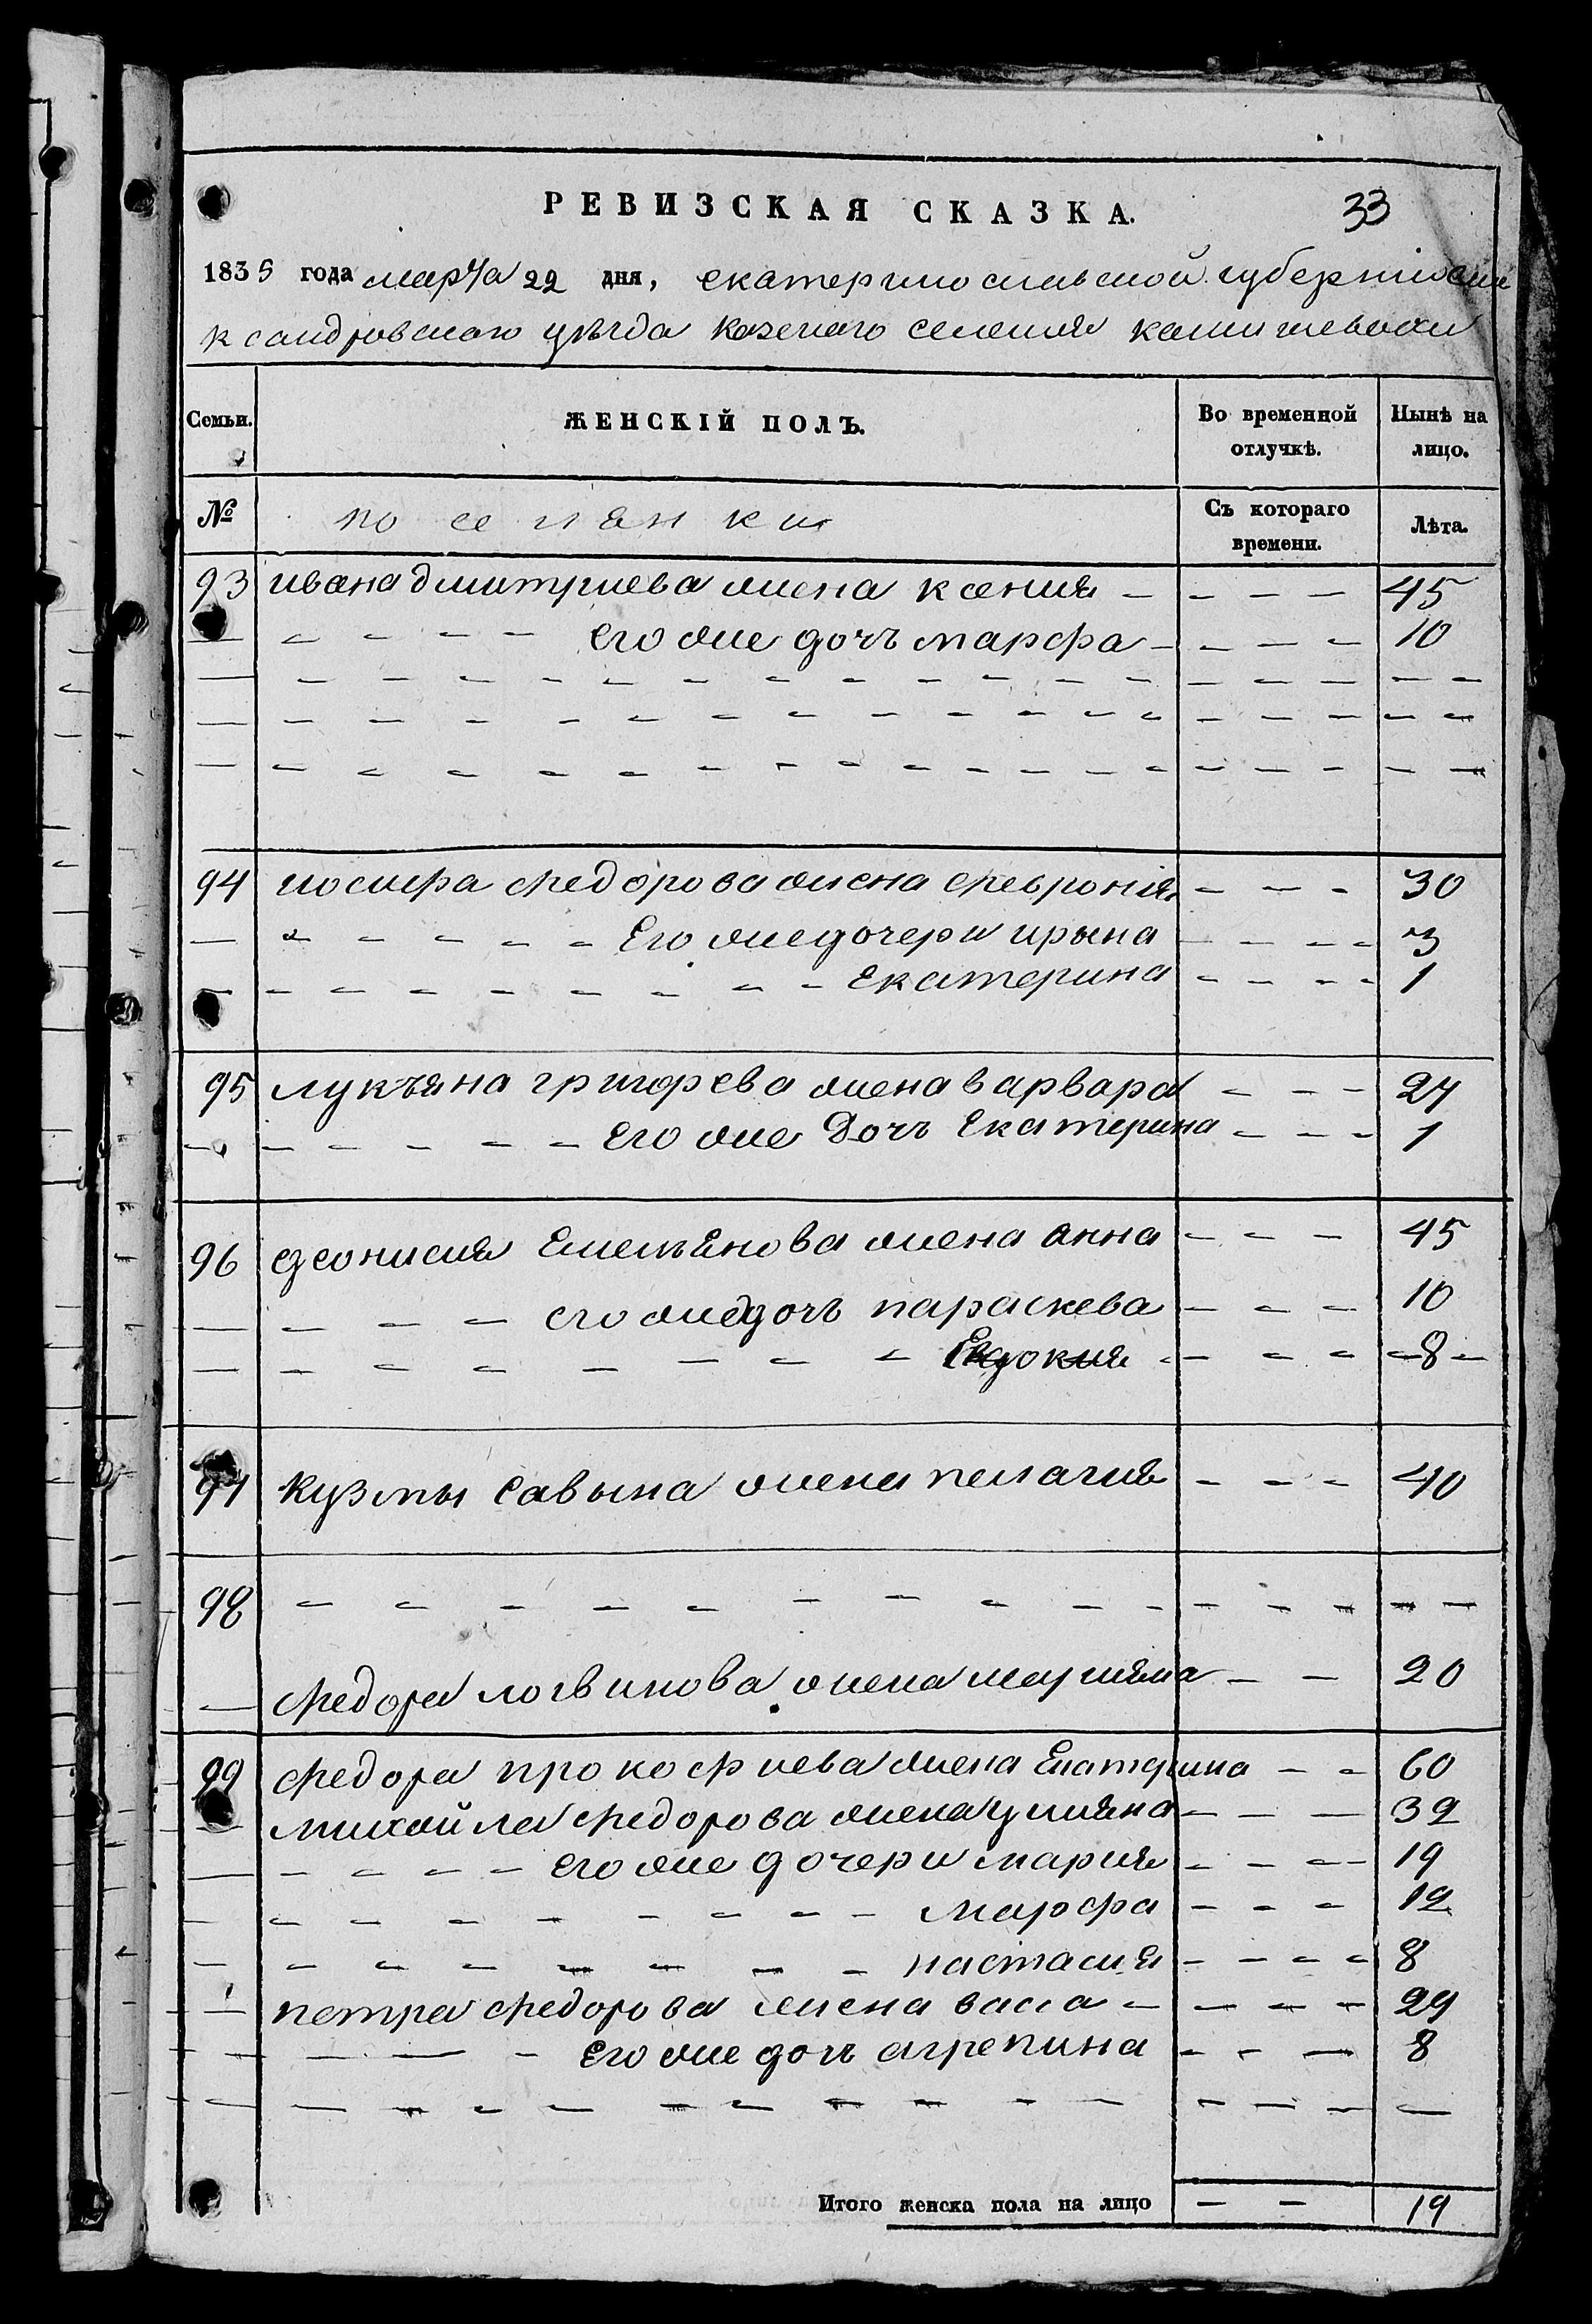 РЕВИЗСКАЯ СКАЗКА. 33
1835 года марта 22 дня, екатеринославской губернии але
ксандровского уѣзда казенаго селения камишевахи
Семьи. ЖЕНСКІЙ ПОЛЪ. Во временной отлучкѣ. Нынѣ на лицо.
№ поселянки Съ котораго времени. Лѣта.
93 ивана дмитриева жена ксения - - - - 45
— - - - - его же дочъ марфа - - - - 10
94 иосифа федорова жена феврония - - - 30
— - - - - - его же дочери ирына - - - - 3
— - - - - - - - - екатерина - - - - 1
95 лукъяна григорева жена варвара - - - 27
— - - - - - его же дочъ екатерина - - - 1
96 деонисия емельянова жена анна - - - 45
— - - - его же дочъ параскева - - - 10
— - - - - - - - - Евдокия - - - - 8 -
97 кузмы савына жена пелагия - - - 40
98 - - - - - - - - - - - - - - -
— федора логвинова жена марияна - - 20
99 федора прокофиева жена Екатерина - - 60
— михайла федорова жена улияна - - - 39
— - - - - его же дочери мария - - - - 19
— - - - - - - - - марфа - - - 12
— - - - - - - - настасия - - - - 8
— петра федорова жена васса - - - - - 29
— — — - его же дочъ агрепина - - — 8
Итого женска пола на лицо — — 19